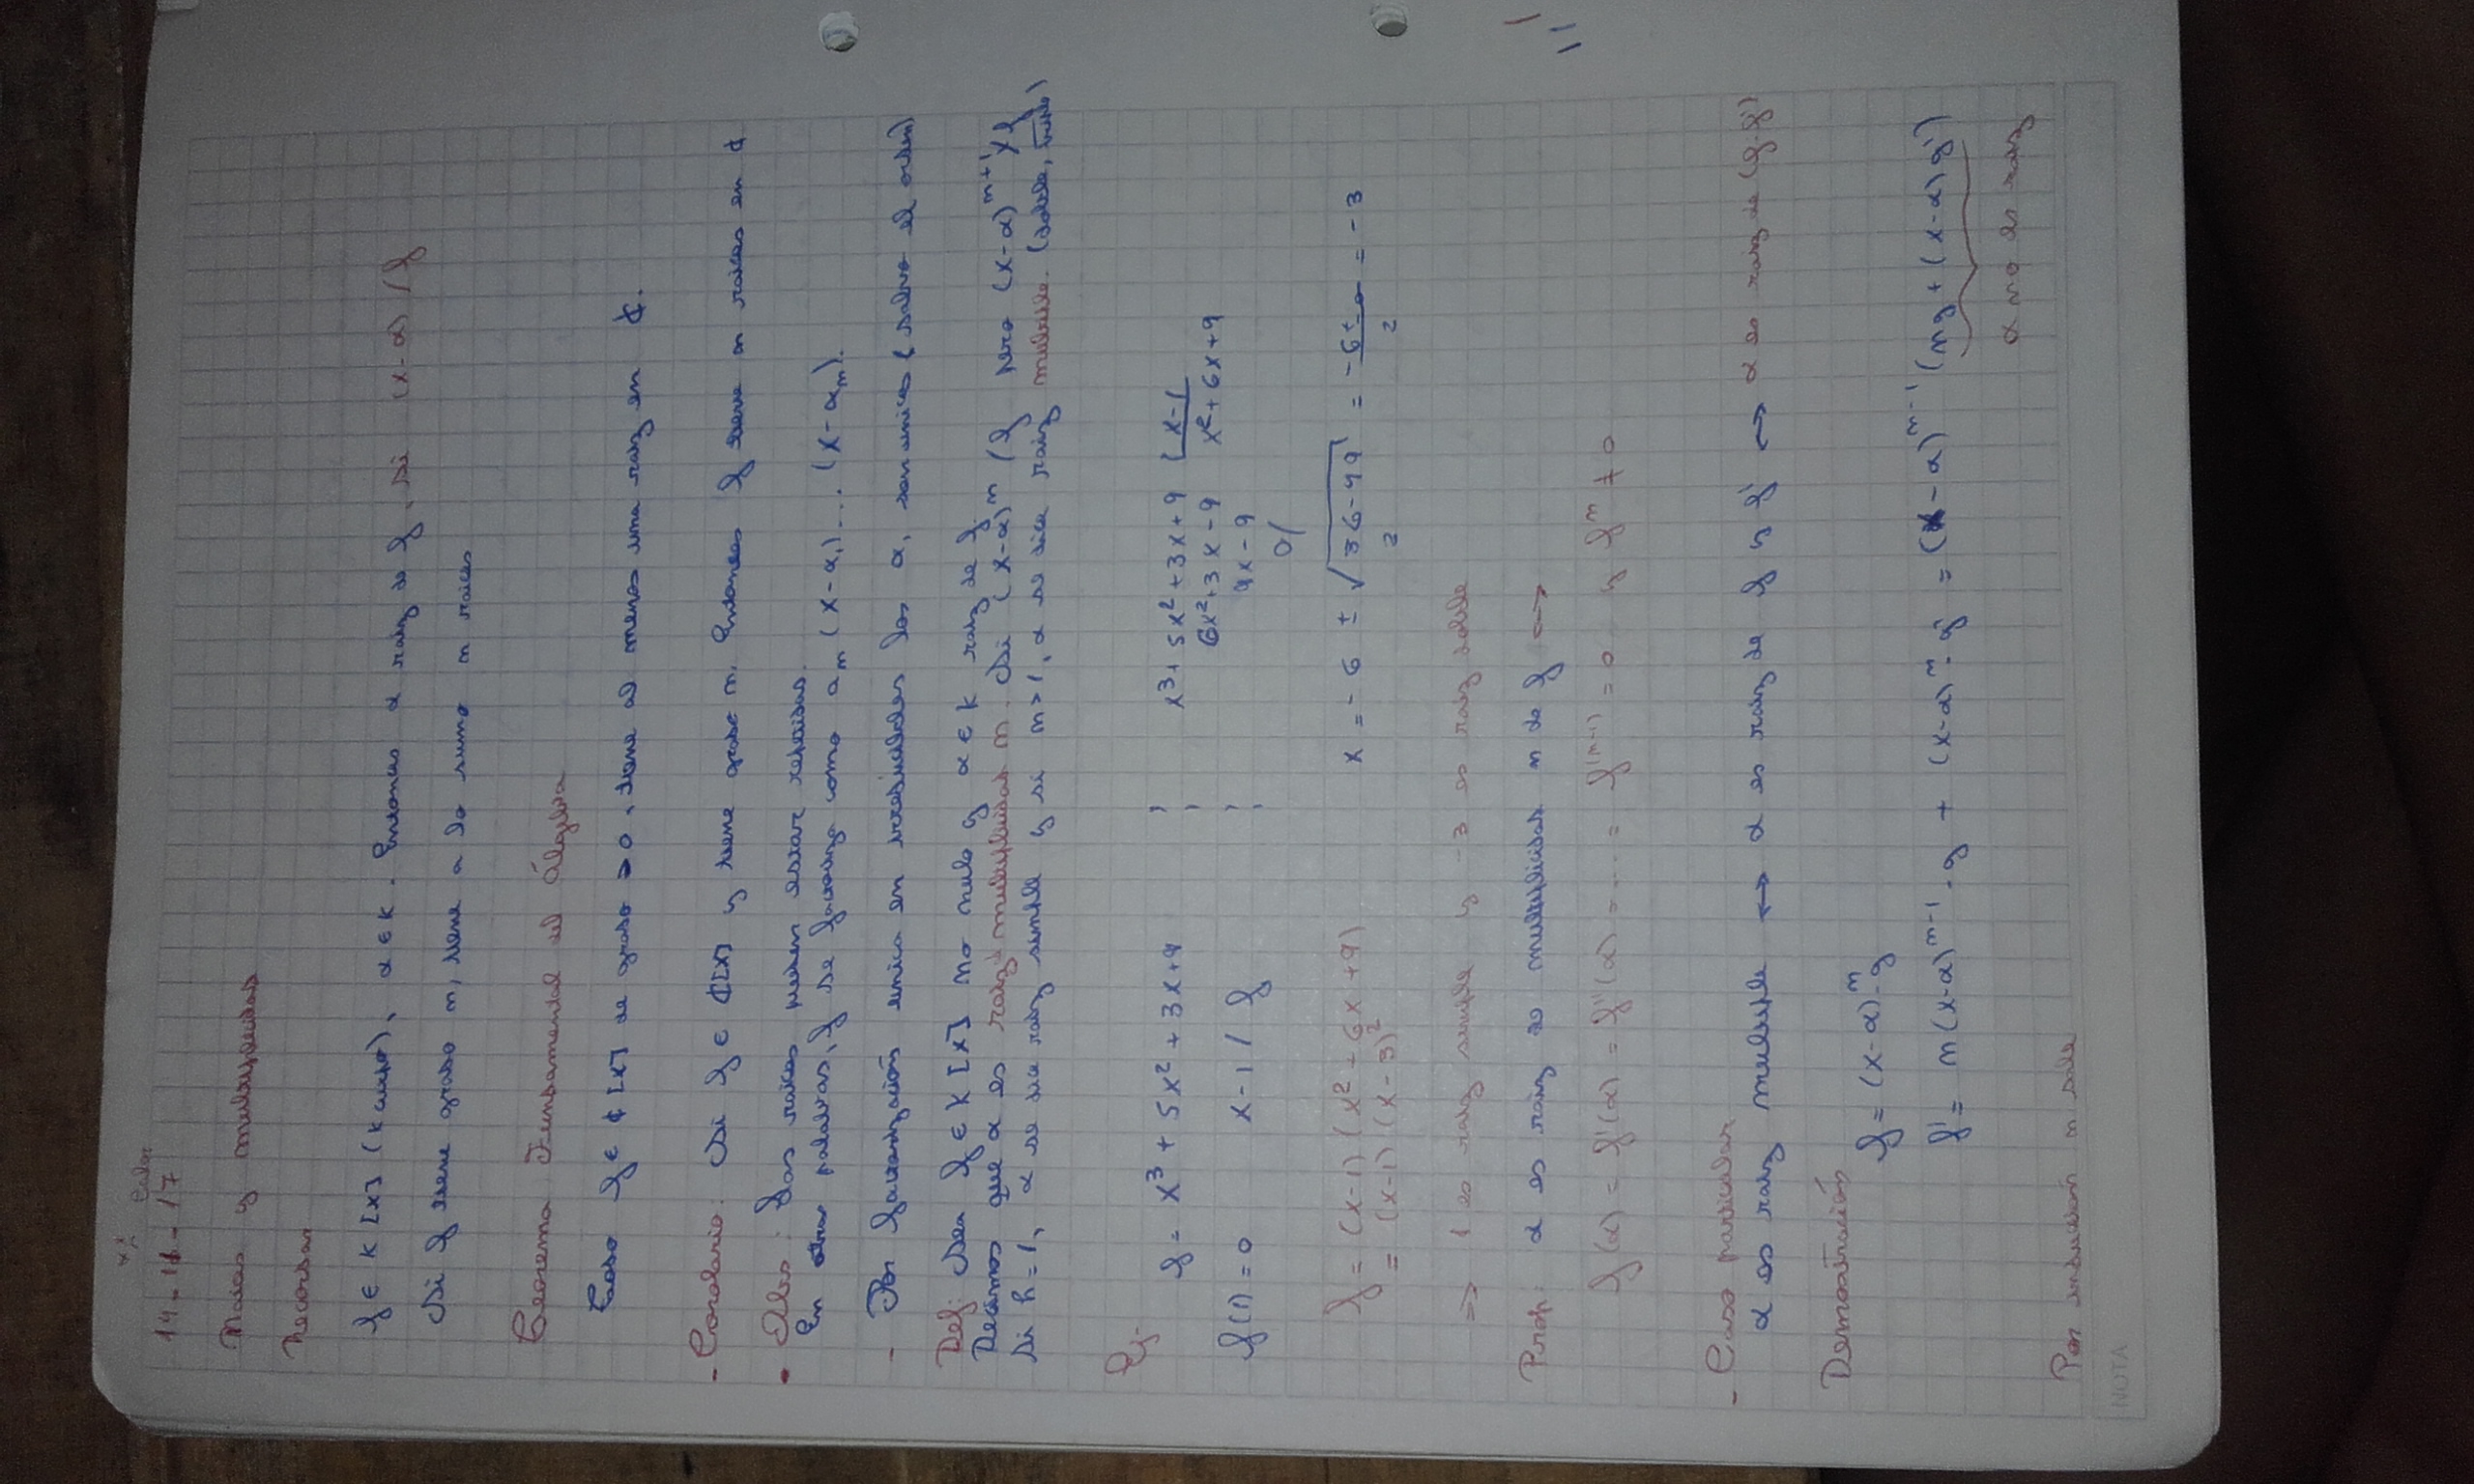 Calor
14-11-17
Raices y multiplicidad
Recordar
f ∈ K[x] (K cuerpo), α ∈ K. Entonces α raiz de f, si (x-α) / f
Si f tiene grado n, tiene a lo sumo n raices
Teorema Fundamental del Álgebra
Todo f ∈ ₵[x] de grado > 0, tiene al menos una raiz en ₵.
- Corolario: Si f ∈ ₵[x] y tiene grado n. Entonces f tiene n raices en ₵
- Obs: Las raices pueden estar repetidas.
En otras palabras, f se factoriza como aₙ(x-α₁)...(x-αₙ).
- Por factorización unica en irreducibles los α, son unicos (salvo el orden)
Def: Sea f ∈ K[x] no nulo y α ∈ K raiz de f.
Decimos que α es raiz multiplicidad n. Si (x-α)ⁿ / f pero (x-α)ⁿ⁺¹ ∤ f
Si h=1, α se dice raiz simple y si n>1, α se dice raiz multiple. (doble, triple)
Ej-
f = x³ + 5x² + 3x + 9
x³ + 5x² + 3x + 9 | x-1
6x² + 3x - 9 x² + 6x + 9
f(1) = 0 x-1 / f
9x - 9
0/
f = (x-1)(x² + 6x + 9) x = -6 ± √36-49 = -6±0 = -3
2 2
= (x-1)(x-3)²
⇒ 1 es raiz simple y -3 es raiz doble
Prop: α es raiz de multiplicidad n de f ⟷
f(α) = f'(α) = f''(α) = ... = f⁽ⁿ⁻¹⁾ = 0 y fⁿ ≠ 0
- Caso particular
α es raiz multiple ⟷ α es raiz de f y f' ⟷ α es raiz de (f.f')
Demostración
f = (x-α)ⁿ.g
f' = n(x-α)ⁿ⁻¹.g + (x-α)ⁿ.g' = (x-α)ⁿ⁻¹(ng + (x-α)g')
α no es raiz
Por induccion n sale
NOTA